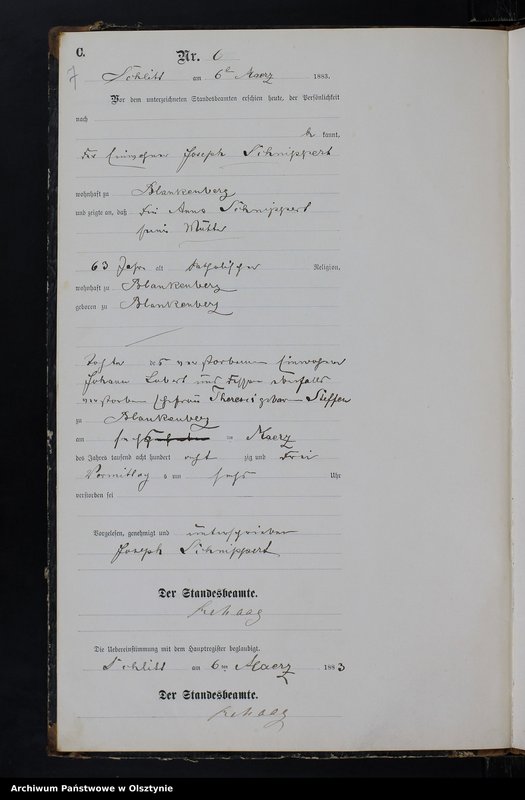 C.
Nr. 6
7
Schlitt am 6ten Maerz 1883.
Vor dem unterzeichneten Standesbeamten erschien heute, der Persönlichkeit
nach
be kannt,
der Einwohner Joseph Schnippert
wohnhaft zu Blankenberg
und zeigte an, daß die Anna Schnippert
seine Mutter
63 Jahre alt katholischer Religion,
wohnhaft zu Blankenberg
geboren zu Blankenberg
Tochter des verstorbenen Einwohner
Johann und dessen ebenfalls
verstorbenen Ehefrau Therese geborn Steffen
zu Blankenberg
am Maerz
des Jahres tausend acht hundert acht zig und drei
Vormittag s um sechs Uhr
verstorben sei
Vorgelesen, genehmigt und unterschrieben
Joseph Schnippert
Der Standesbeamte.
Rehaag
Die Uebereinstimmung mit dem Hauptregister beglaubigt.
Schlitt am 6ten Maerz 1883
Der Standesbeamte.
Rehaag
Archiwum Państwowe w Olsztynie